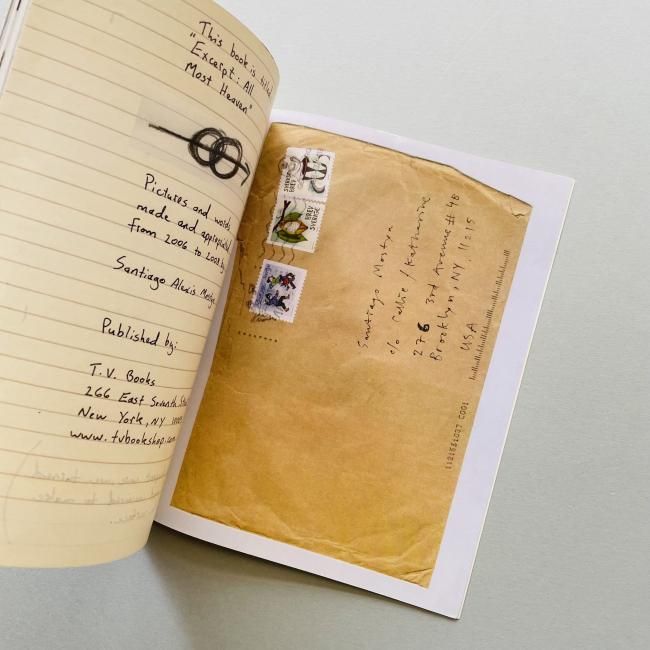 This book is titled
"Excerpt: All
Most Heaven"
Pictures and words
made and appropriated
from 2006 to 2008 by
Santiago Alexis Mostyn
Published by:
T.V. Books
266 East Seventh
New York, NY
www.tvbookshop.com
SVERIGE
BREV
BREV
SVERIGE
Santiago Mostyn
c/o Callie / Katharine
276 3rd Avenue # 4B
Brooklyn, NY. 11215
USA
1121581037 C001